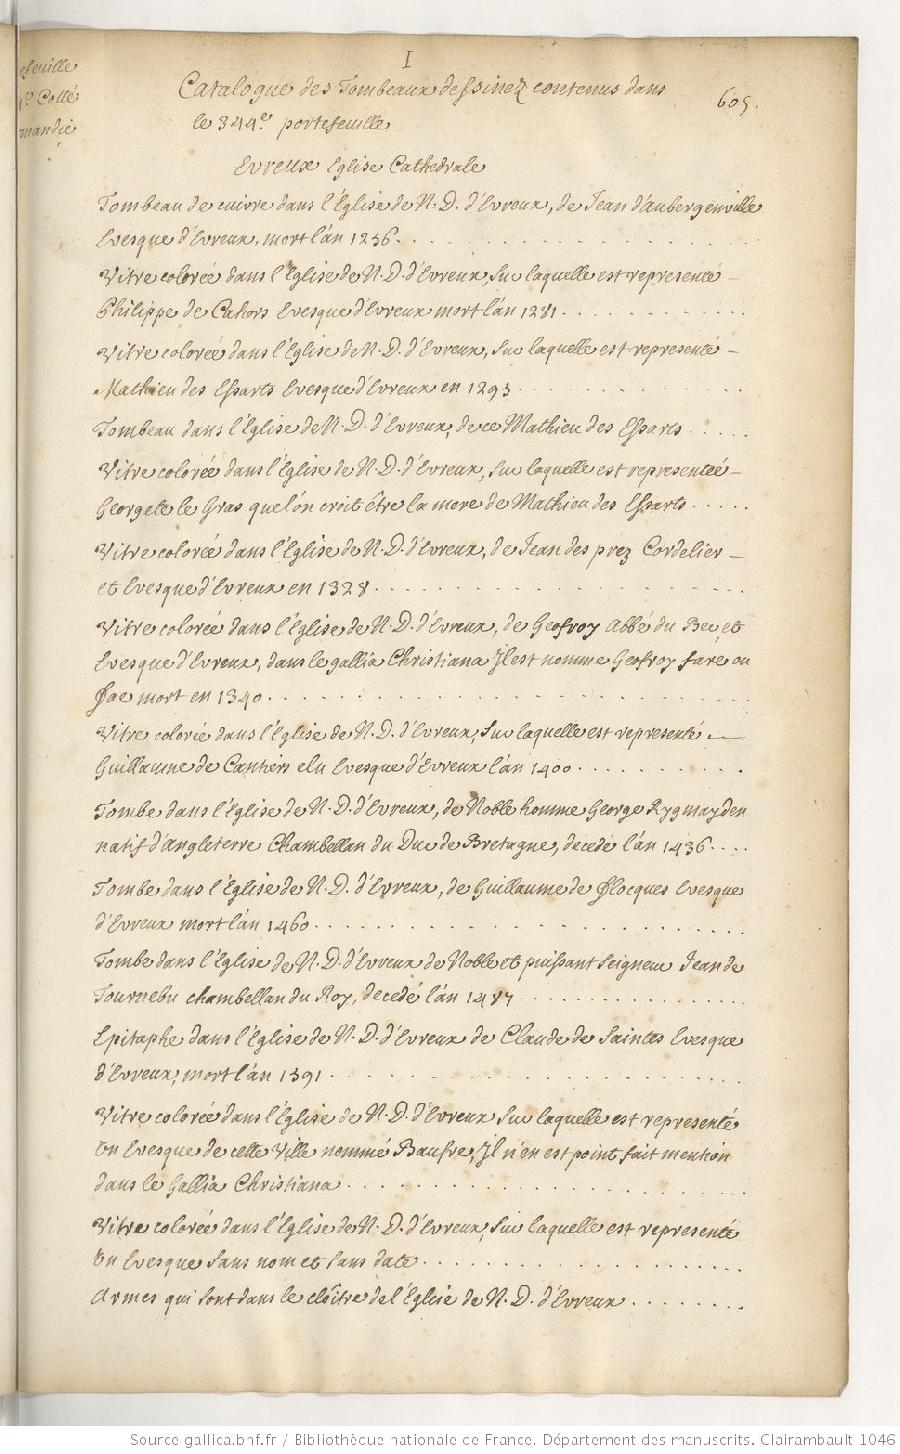 I
Catalogue des Tombeaux dessinez contenus dans
605.
le 344e. portefeuille
Evreux Eglise Cathedrale
Tombeau de cuivre dans l'Eglise de N. D. d'Evreux, de Jean d'Aubergenville
Evesque d'Evreux, mort l'an 1256.
Vitre colorée dans l'Eglise de N. D. d'Evreux, sur laquelle est representé
Philippe de Cahors Evesque d'Evreux mort l'an 1281.
Vitre colorée dans l'Eglise de N. D. d'Evreux, sur laquelle est representé
Mathieu des Essarts Evesque d'Evreux en 1293
Tombeau dans l'Eglise de N. D. d'Evreux, de ce Mathieu des Essarts
Vitre colorée dans l'Eglise de N. D. d'Evreux, sur laquelle est representeé
Georgete le Gras que l'on croit être la mere de Mathieu des Essarts
Vitre colorée dans l'Eglise de N. D. d'Evreux, de Jean des prez Cordelier
et Evesque d'Evreux en 1328
Vitre colorée dans l'Eglise de N. D. d'Evreux, de Geofroy Abbé du Bec et
Evesque d'Evreux, dans le gallia Christiana Il est nommé Geofroy fare ou
Fae mort en 1340
Vitre colorée dans l'Eglise de N. D. d'Evreux, sur laquelle est representé
Guillaume de Cantiers elu Evesque d'Evreux l'an 1400
Tombe dans l'Eglise de N. D. d'Evreux, de Noble homme George Rygmayden
natif d'Angleterre Chambellan du Duc de Bretagne, decedé l'an 1436
Tombe dans l'Eglise de N. D. d'Evreux, de Guillaume de Flocques Evesque
d'Evreux mort l'an 1460
Tombe dans l'Eglise de N. D. d'Evreux de Noble et puissant Seigneur Jean de
Tournebu chambellan du Roy, decedé l'an
Epitaphe dans l'Eglise de N. D. d'Evreux de Claude de Saintes Evesque
d'Evreux, mort l'an 1591
Vitre colorée dans l'Eglise de N. D. d'Evreux sur laquelle est representé
Un Evesque de cette Ville nommé Baufre, Il n'en est point fait mention
dans le Gallia Christiana
Vitre colorée dans l'Eglise de N. D. d'Evreux, sur laquelle est representé
Un Evesque sans nom et sans date
Armes qui sont dans le cloître de l'Eglise de N. D. d'Evreux
Source gallica.bnf.fr / Bibliothèque nationale de France. Département des manuscrits. Clairambault 1046